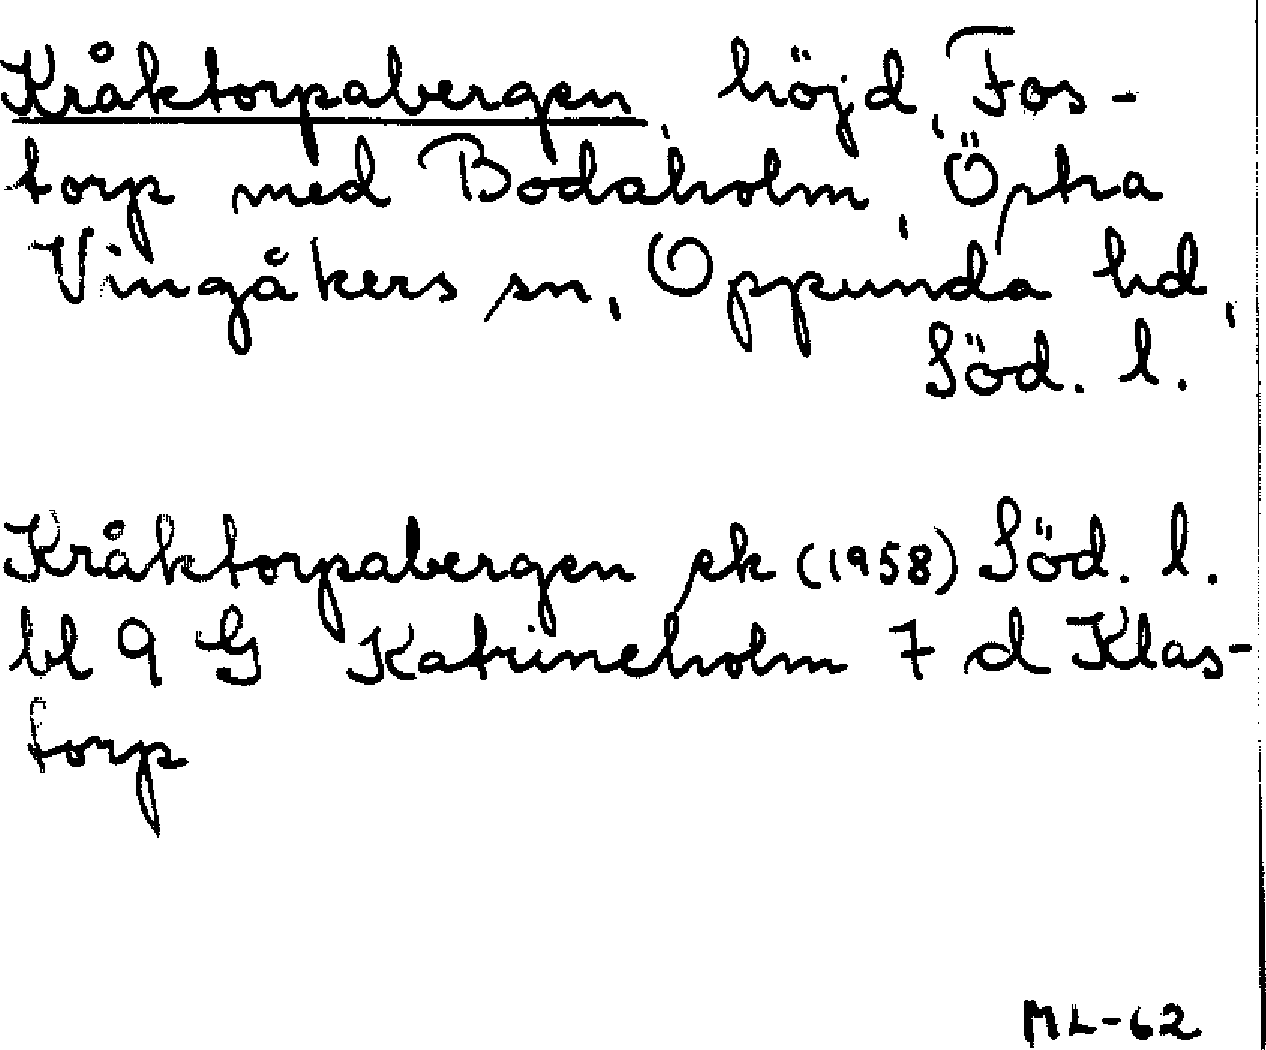 Kråktorpabergen, höjd, Fos-
torp med Bodaholm, Östra
Vingåkers sn, Oppunda hd,
Söd. l.
Kråktorpabergen ek (1958) Söd. l.
bl 9 G Katrineholm 7 d Klas-
torp
ML-62